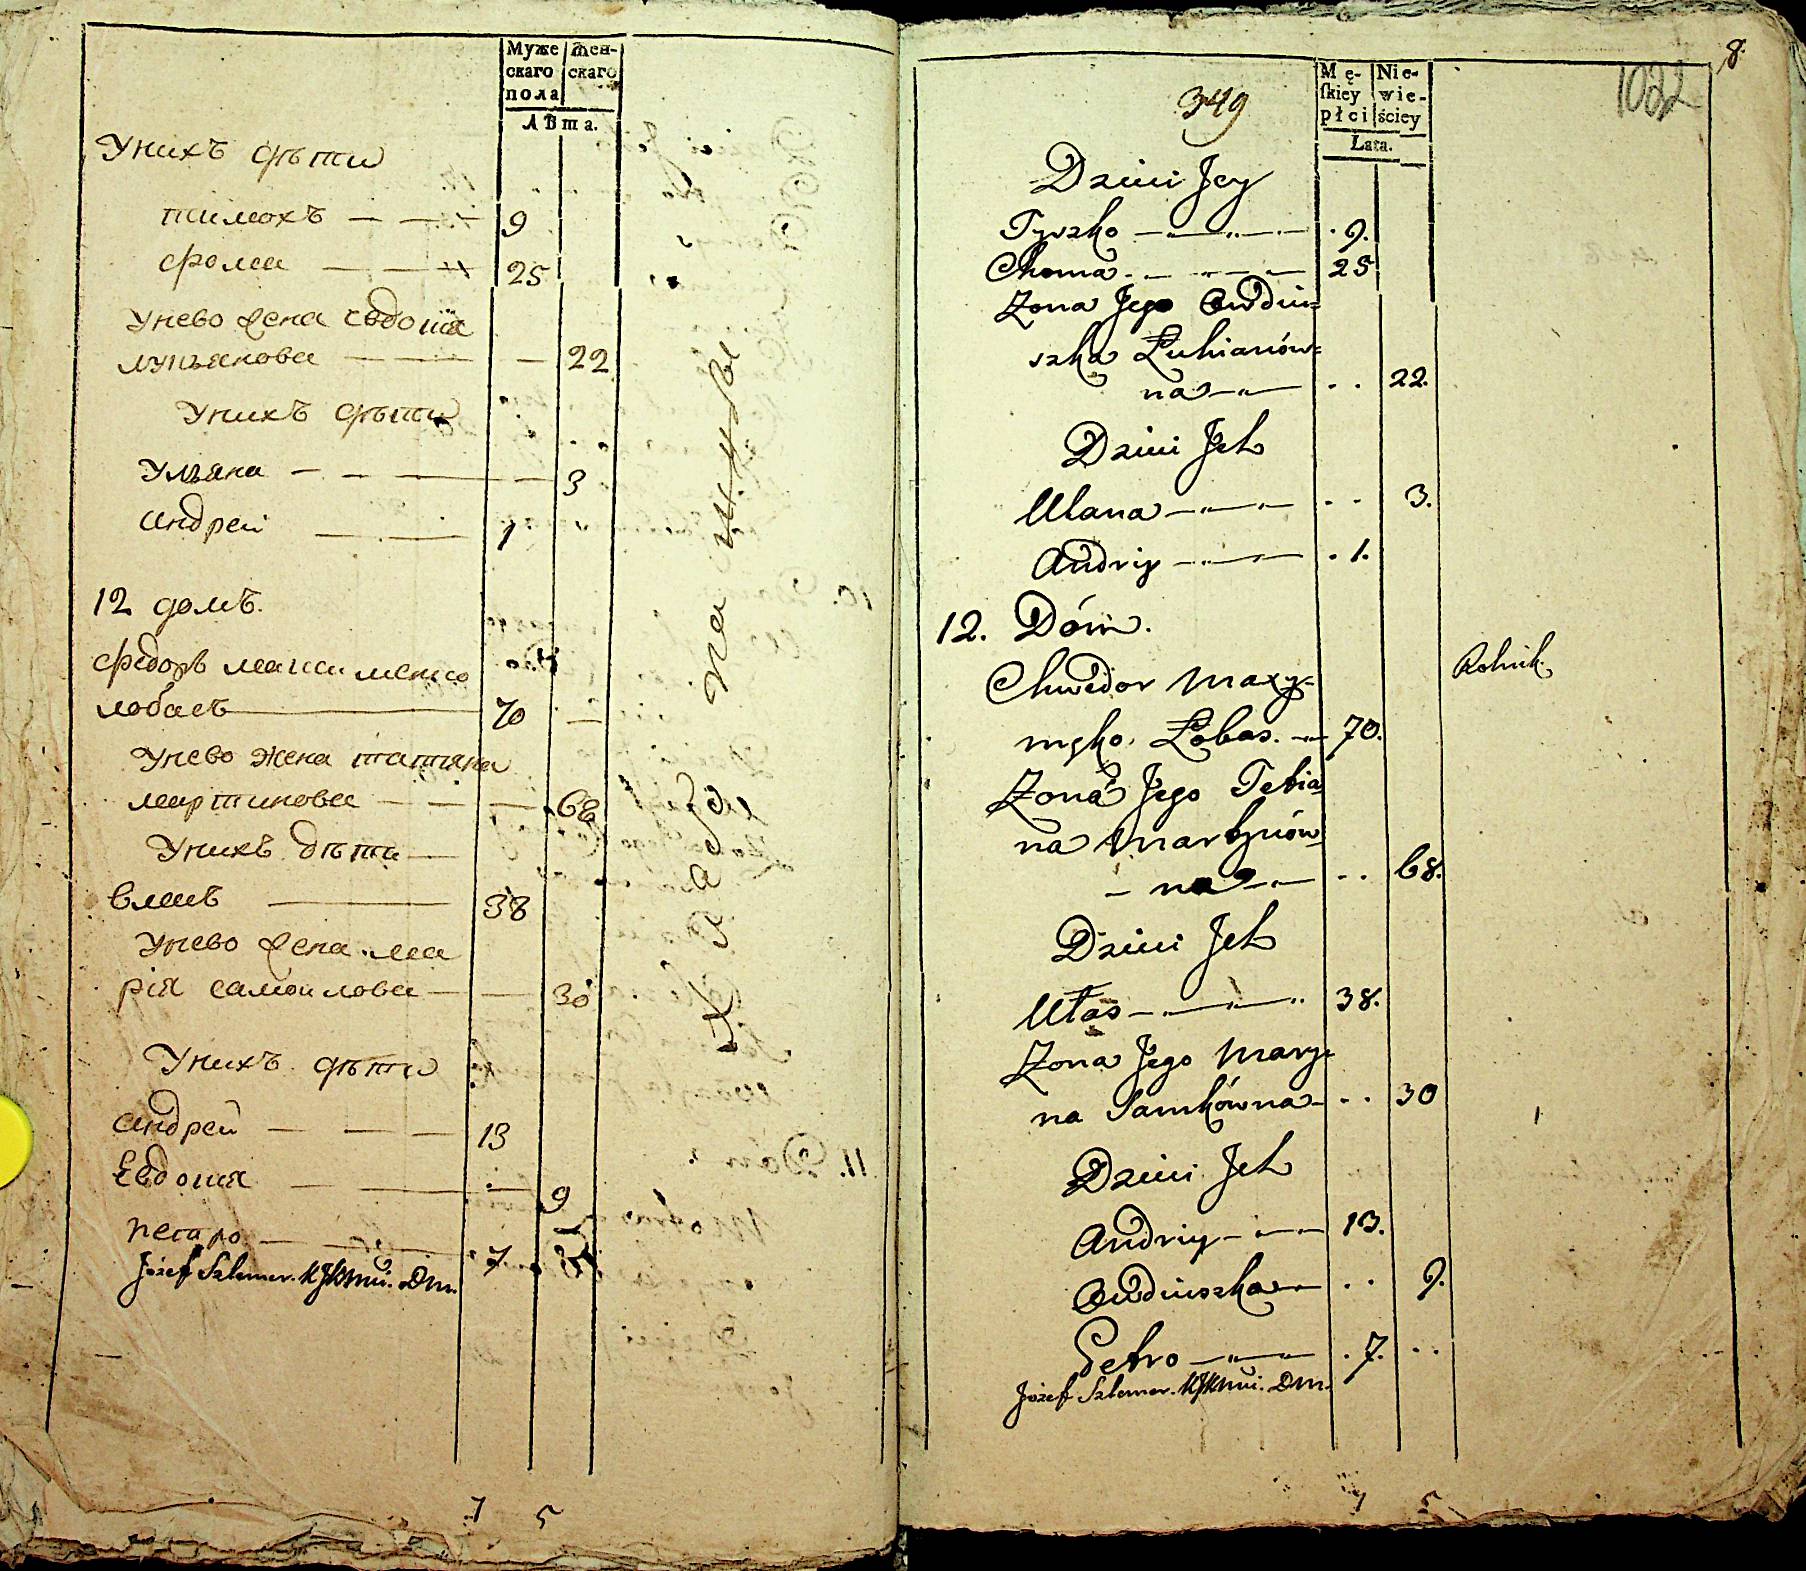 Муже
скаго
пола
Жен-
скаго
Лѣта.
Унихъ дѣти
тимохъ — — 9
фома — — 25
Унево жена євдокія
лукьянова — — 22
Унихъ дѣти
Ульяна — — 3
андрей — — 1
12 домъ.
федоръ максименко
лобасъ — 70
Унево жена татьяна
мартинова — — 68
Унихъ дѣти —
власъ — 38
Унево жена ма
рія самойлова — — 30
Унихъ дѣти
андрей — — 13
Евдокия — — 9
петро — — 7
Józef Szlemer.
7 5
8.
1022
349
Mę-
ſkiey
płci
Nie-
wie-
ściey
Lata.
Dzieci Jey
Tyszko — 9.
Choma — 25
Zona Jego Owdiu=
szka Łukianów=
na — 22.
Dzieci Jch
Ulana — 3.
Andriy — 1.
12. Dóm.
Chwedor Maxy=
męko. Łobas. — 70.
Rolnik.
Zona Jego Tetia
na Martynów
na — 68.
Dzieci Jch
Ułas — 38.
Zona Jego Mary=
na Samkówna — 30
Dzieci Jch
Andriy — 13.
Owdiuszka — 9.
Petro — 7.
Józef Szlemer.
7 5